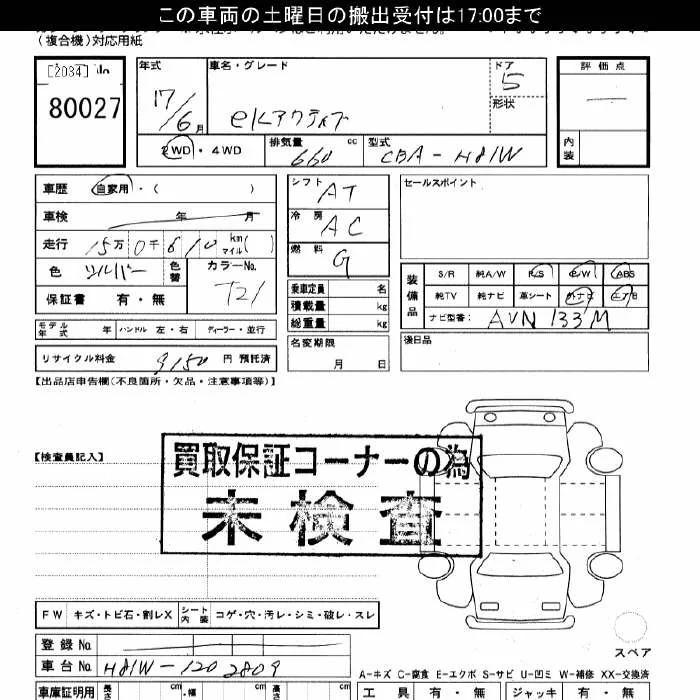 この車両の土曜日の搬出受付は17:00まで
(複合機)対応用紙
[2034] No
80027
年式 17/6月
車名・グレード eKアクティブ
ドア 5
形状
評価点
内装
2WD・4WD
排気量 660 cc
型式 CBA-H81W
車歴 自家用・( )
車検 年 月
走行 15万0千610 km マイル( )
色 シルバー 色替 カラーNo. T21
保証書 有・無
モデル年式 年 ハンドル 左・右 ディーラー・並行
リサイクル料金 9150 円 預託済
シフト AT
冷房 AC
燃料 G
乗車定員 名
積載量 kg
総重量 kg
名変期限 月 日
セールスポイント
装備品
S/R 純A/W P/S P/W ABS
純TV 純ナビ 革シート 外ナビ ETC
ナビ型番: AVN 133M
後日品
【出品店申告欄(不良箇所・欠品・注意事項等)】
【検査員記入】
買取保証コーナーの為
未検査
FW キズ・トビ石・割レX シート内装 コゲ・穴・汚レ・シミ・破レ・スレ
スペア
登録No.
車台No. H81W-1202809
A-キズ C-腐食 E-エクボ S-サビ U-凹ミ W-補修 XX-交換済
車庫証明用 長さ cm ・幅 cm 高さ cm
工具 有・無 ジャッキ 有・無